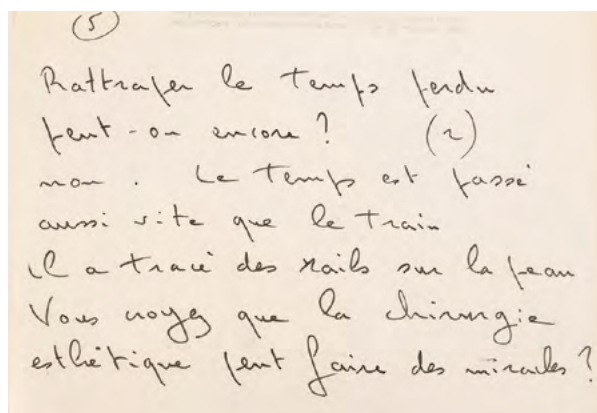 5
Rattraper le temps perdu
peut-on encore ? (2)
non. Le temps est passé
aussi vite que le train
il a tracé des rails sur la peau
Vous croyez que la chirurgie
esthétique peut faire des miracles ?